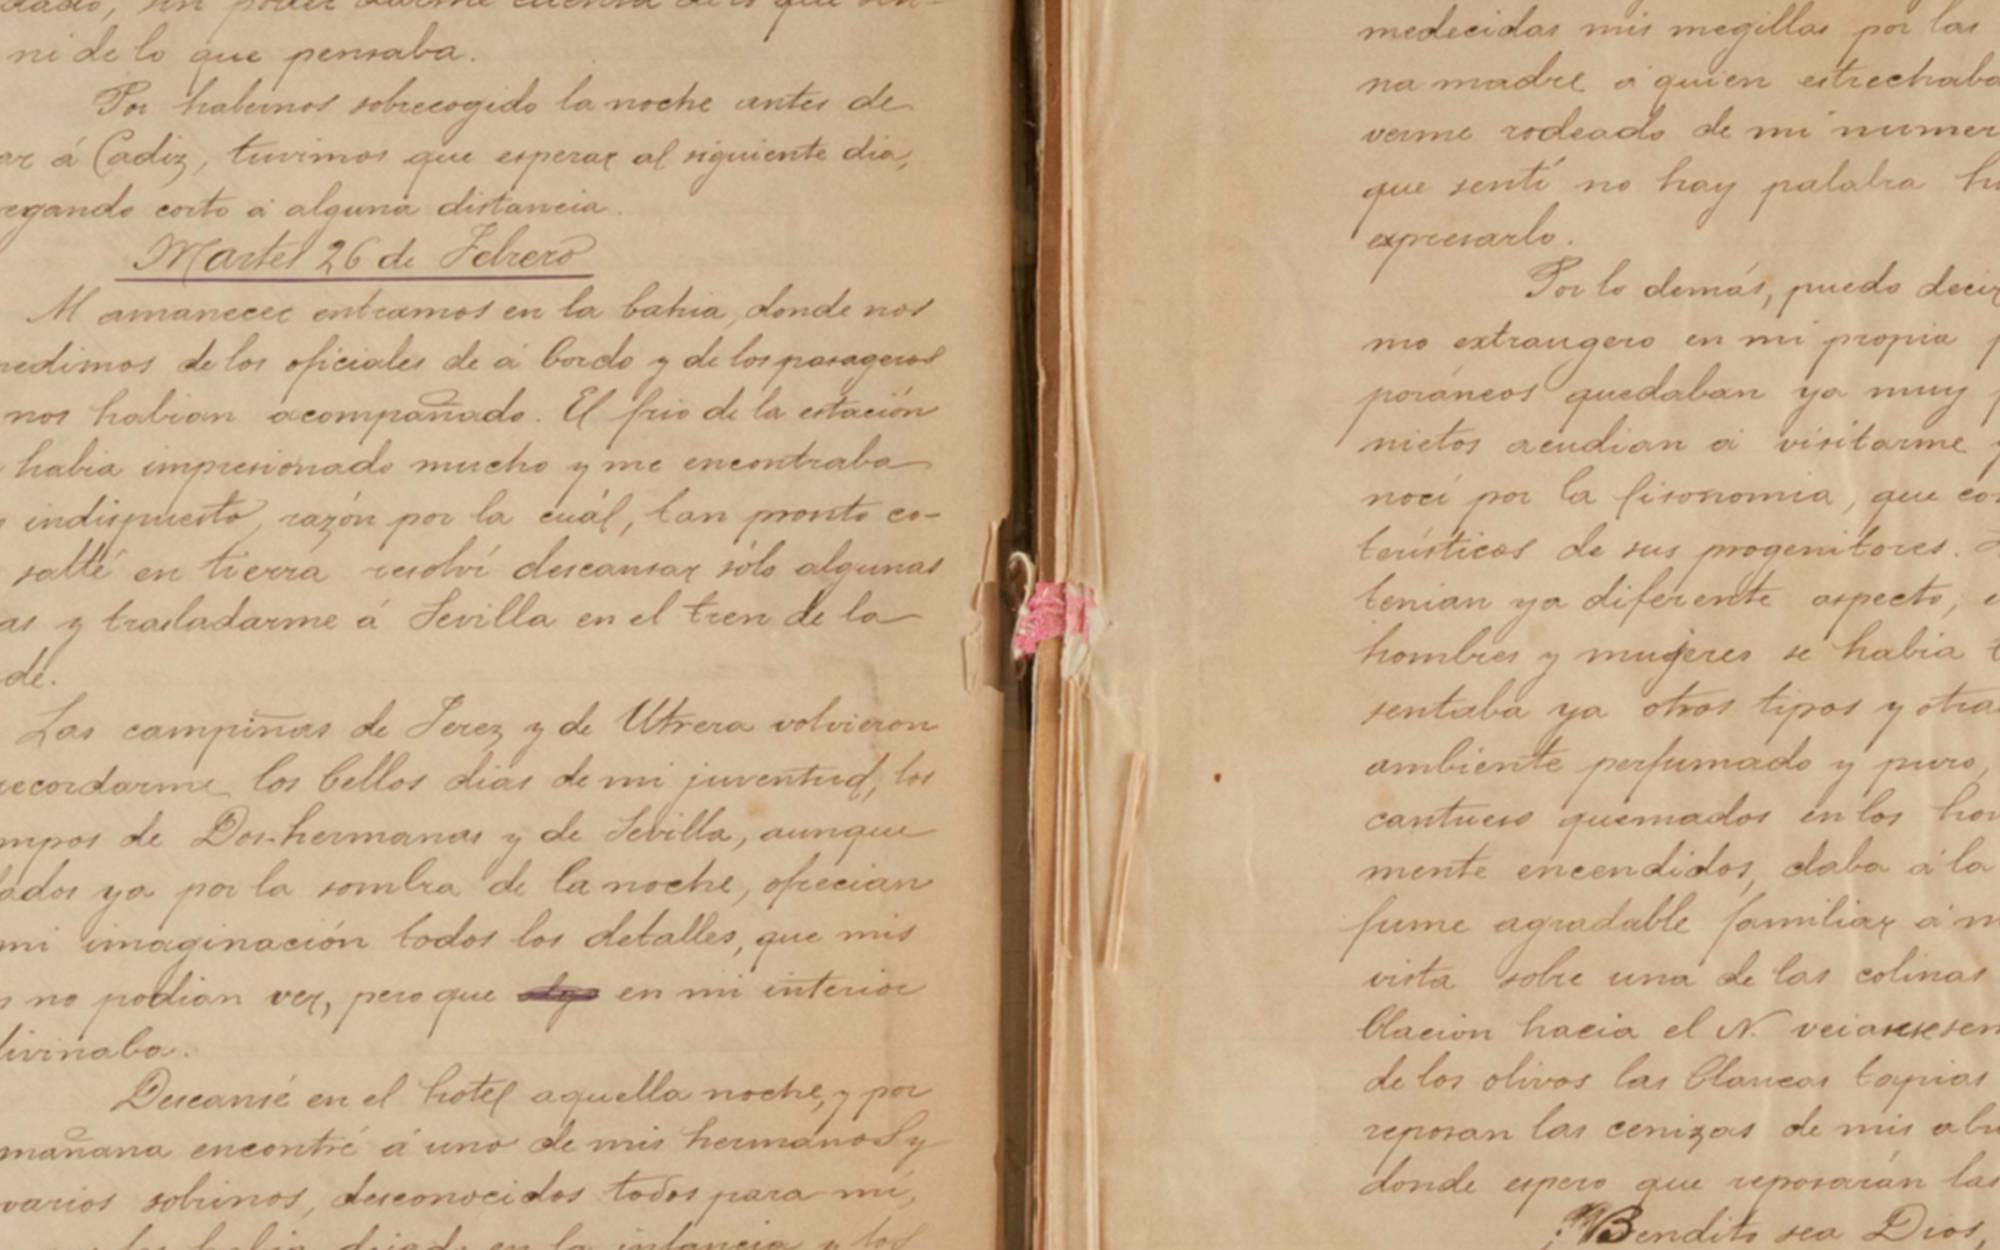 ni de lo que pensaba.
Por habernos sobrecogido la noche antes de
ar á Cadiz, tuvimos que esperar al siguiente dia,
egando corto á alguna distancia.
Martes 26 de Febrero
Al amanecer entramos en la bahia, donde nos
pedimos de los oficiales de á bordo y de los pasageros
nos habian acompañado. El frio de la estación
habia impresionado mucho y me encontraba
indispuesto, razón por la cuál, tan pronto co-
salté en tierra resolví descansar sólo algunas
as y trasladarme á Sevilla en el tren de la
de.
Las campiñas de Jerez y de Utrera volvieron
recordarme los bellos dias de mi juventud, los
mpos de Dos-hermanas y de Sevilla, aunque
lados ya por la sombra de la noche, ofrecian
mi imaginación todos los detalles, que mis
s no podian ver, pero que en mi interior
divinaba.
Descansé en el hotel aquella noche, y por
mañana encontré á uno de mis hermanos y
varios sobrinos, desconocidos todos para mí,
habia dejado en la infancia y los
medecidas mis megillas por las
na madre á quien estrechaba
verme rodeado de mi numer
que sentí no hay palabra hu
expresarlo.
Por lo demás, puedo decir
mo extrangero en mi propia p
poráneos quedaban ya muy p
nietos acudian á visitarme y
nocí por la fisonomia, que co
terísticos de sus progenitores.
tenian ya diferente aspecto, e
hombres y mujeres se habia t
sentaba ya otros tipos y otra
ambiente perfumado y puro,
cantueso quemados en los hor
mente encendidos, daba á la
fume agradable familiar á m
vista sobre una de las colinas
blación hacia el N. veiase sem
de los olivos las blancas tapias
reposan las cenizas de mis abu
donde espero que reposarán las
Bendito sea Dios,